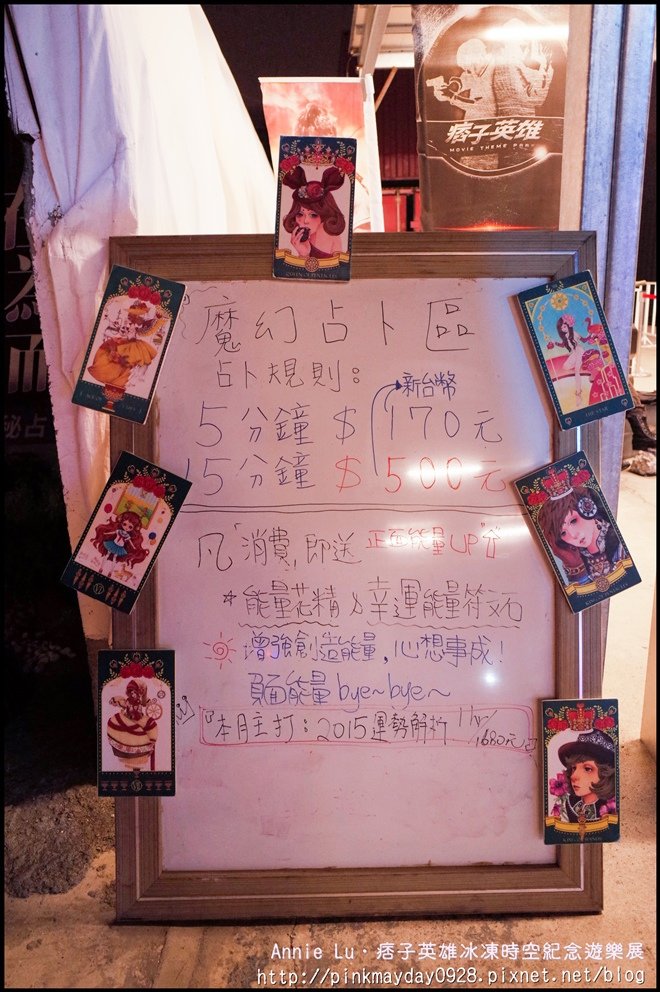 痞子英雄
MOVIE THEME PARK
QUEEN OF PENTACLES
魔幻占卜區
占卜規則：
新台幣
5分鐘 $ 170元
15分鐘 $ 500元
THE STAR
凡「消費」即送 正面能量UP
*能量花精 & 幸運能量符文石
增強創造能量,心想事成!
負面能量bye~bye~
『本月主打：2015運勢解析 1hr/1680元
VI
VII
Annie Lu·痞子英雄冰凍時空紀念遊樂展
http://pinkmayday0928.pixnet.net/blog